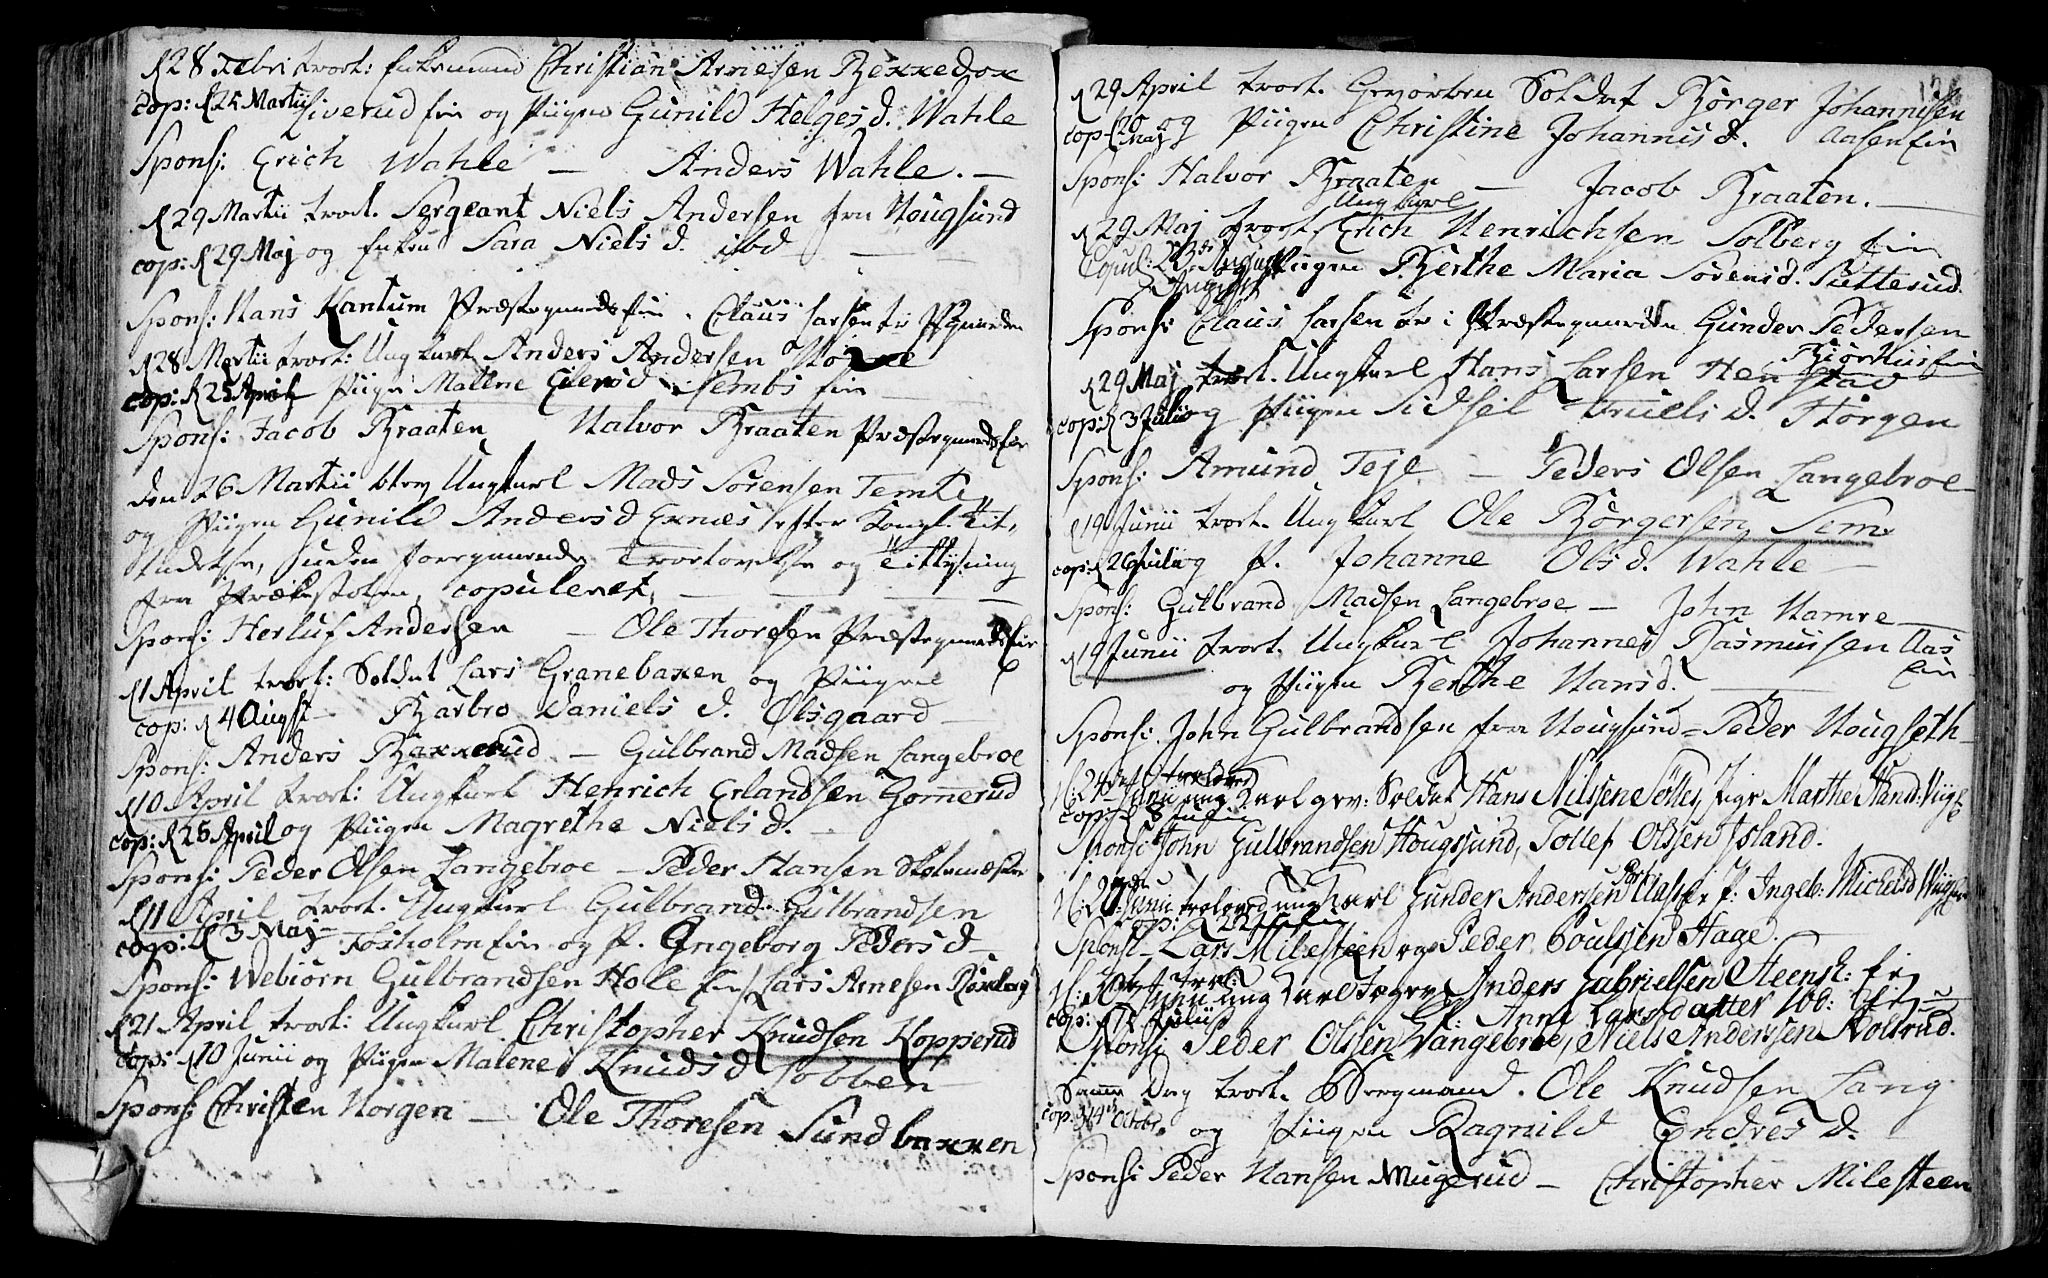 d 28 Febri trol: Enkemand Christian Arnesen Bexxedox
cop: d 25 Martii Siverud Eir og Piigen Gunild Helgesd. Wahle
Spons: Erich Wahle – Anders Wahle. –
d 29 Martii trol. Sergeant Niels Andersen fra Hougsund
cop: d 29 Maj og Enken Sara Nielsd. ibd – –
Spons: Hans Kantum Præstegaards Eir. Claus Larsen Præstegaarden
d 28 Martii trol: Ungkarl Anders Andersen
cop: d 25 April Piigen Malene Eilersd. Sembs Eir
Spons: Jacob Braaten Halvor Braaten Præstegaards Eir
den 26 Martii blev Ungkarl Mads Sørensen Temte
og Piigen Gunild Andersd Exnes efter Kongl. Til-
ladelse, uden foregaaende Trolovelse og Tillysning
fra Prækestolen, copuleret,
Spons: Herluf Andersen – Ole Thoresen Præstegaards Eir
d 1 April trol: Soldat Lars Granebaxen og Piigen
cop: d 4 Augst – Barbro Daniels d. Olsgaard –
Spons: Anders Bexxerud – Gulbrand Madsen Langebroe
d 10 April trol: Ungkarl Henrich Erlandsen Gommerud
cop: d 25 April og Piigen Magrethe Nielsd.
Spons: Peder Olsen Langebroe – Peder Hansen Skolemæster
d 11 April trol. Ungkarl Gulbrand Gulbrandsen
cop: d 3 Maj – Foxholm Eir og P. Ingeborg Pedersd –
Spons: Webiørn Gulbrandsen Holle Eir / Lars Arnesen Røxberg
d 21 April trol: Ungkarl Christopher Knudsen Kopperud
cop: d 10 Junii og Piigen Malene Knudsd Lobben
Spons: Christen Horgen – Ole Thoresen Sundbaxxen
d 29 April trol. Gevorben Soldat Børger Johannesen
cop: d 20 Maj og Piigen Christine Johannisd. Aasen Eir
Spons: Halvor Braaten – Jacob Braaten. –
d 29 Maj trol. Ungkarl Erich Henrichsen Solberg Eir
Copul: 23de August og Piigen Berthe Maria Sørensd. Sutterud
Spons: Claus Larsen Præstegaarden Gunder Pedersen
Biørhus Eir
d 29 Maj trol. Ungkarl Hans Larsen Henstad
cop: d 3 Julii og Piigen Sidsel Truelsd. Horgen
Spons: Amund Teje – Peders Olsen Langebroe –
d 19 Junii trol. Ungkarl Ole Børgersen Sem
cop: d 26 Julii og P. Johanne Olsd. Wahle –
Spons: Gulbrand Madsen Langebroe – John Hamre –
d 19 Junii trol. Ungkarl Johannes Rasmussen Aas
Eir
og Piigen Berthe Hansd.
Spons: John Gulbrandsen fra Hougsund = Peder Hougseth –
d: 24de Junii trolovet ung Karl gev: Soldat Hans Nilssen Pige Marthe Hansd:
cop: d 8 Julii
Sponsi John Gulbrandsen Hougssund, Tollef Olssen Island.
d: 27de Junii troloved ung Karl Gunder Anderssen P. Ingeb: Michelsd
cop: d 22 Julii
Sponsi – Lars Milesteen og Peder Poulssen Hage.
Junii trol: ung Karl Anders Gabrielssen Steensh: Eir
cop: Julii P: Anne Larsdatter ibd: Eir
Sponsi Peder Olssen Langebroe, Niels Anderssen Kolsrud.
Samme Dag trol. Bergmand. Ole Knudsen Lang
cop: d 14de Octobr. og Piigen Ragnild Endresd.
Spons: Peder Hansen Mugerud – Christopher Milesteen